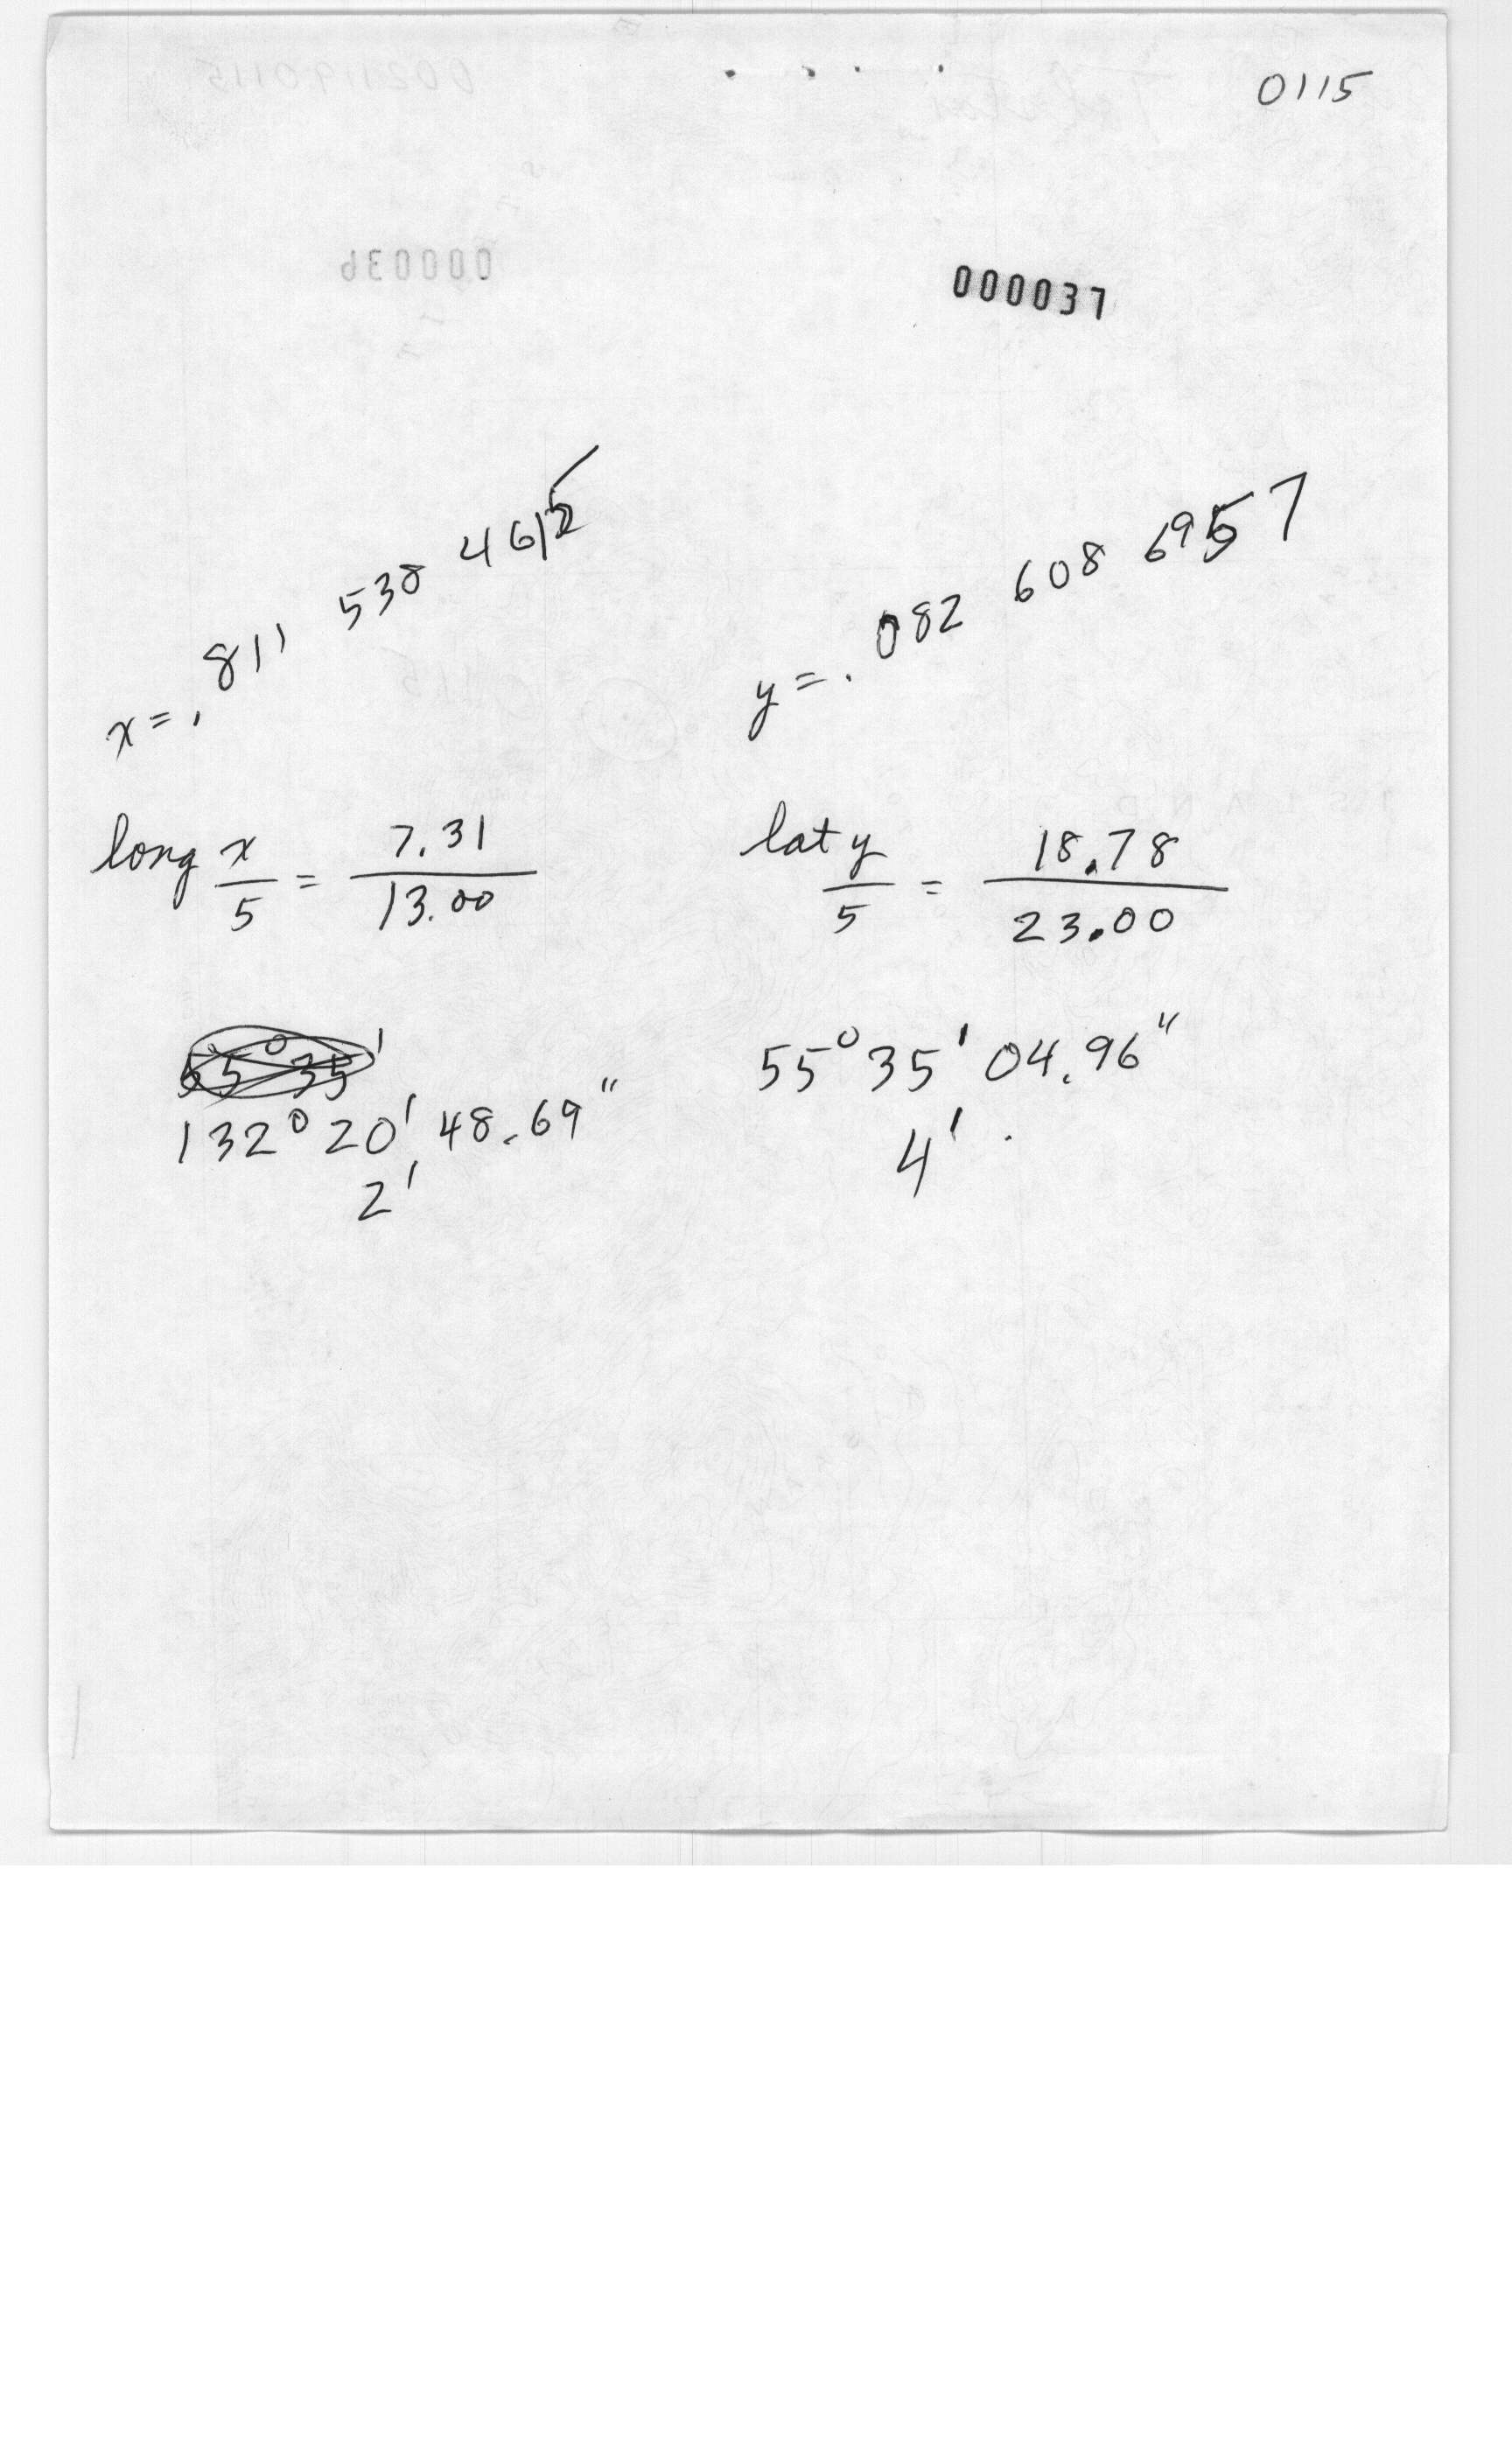 0115
000037
x = .811 538 4615
y = .082 608 6957
long x/5 = 7.31/13.00
lat y/5 = 18.78/23.00
55° 35'
132° 20' 48.69"
2'
55° 35' 04.96"
4'